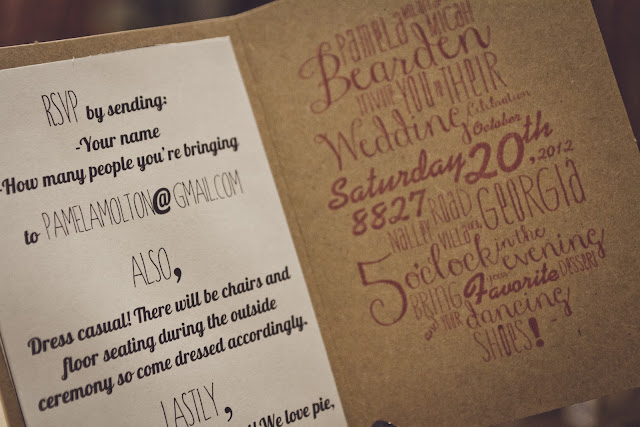 RSVP by sending:
-Your name
-How many people you're bringing
to PAMELAMOLTON@GMAIL.COM
ALSO,
Dress casual! There will be chairs and
floor seating during the outside
ceremony so come dressed accordingly.
LASTLY,
! We love pie,
PAMELA MICAH
Bearden
INVITE YOU to THEIR
Wedding Celebration
October
Saturday 20th, 2012
8827 NALLEY ROAD
VILLA RICA, GEORGIA
5 o'clock in the evening
BRING your Favorite DESSERT
and YOUR dancing
SHOES!